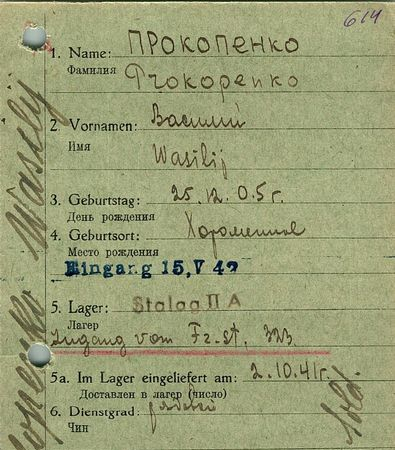 614
1. Name: ПРОКОПЕНКО
Фамилия Prokopenko
2. Vornamen: Василий
Имя Wasilij
3. Geburtstag: 25.12.05г.
День рождения
4. Geburtsort:
Место рождения
Eingang 15.V 42
5. Lager: Stalag II A
Лагер
Zugang vom Fr-St. 323
5a. Im Lager eingeliefert am: 2.10.41г.
Доставлен в лагер (число)
6. Dienstgrad: рядовой
Чин
Sold.
Wasilij